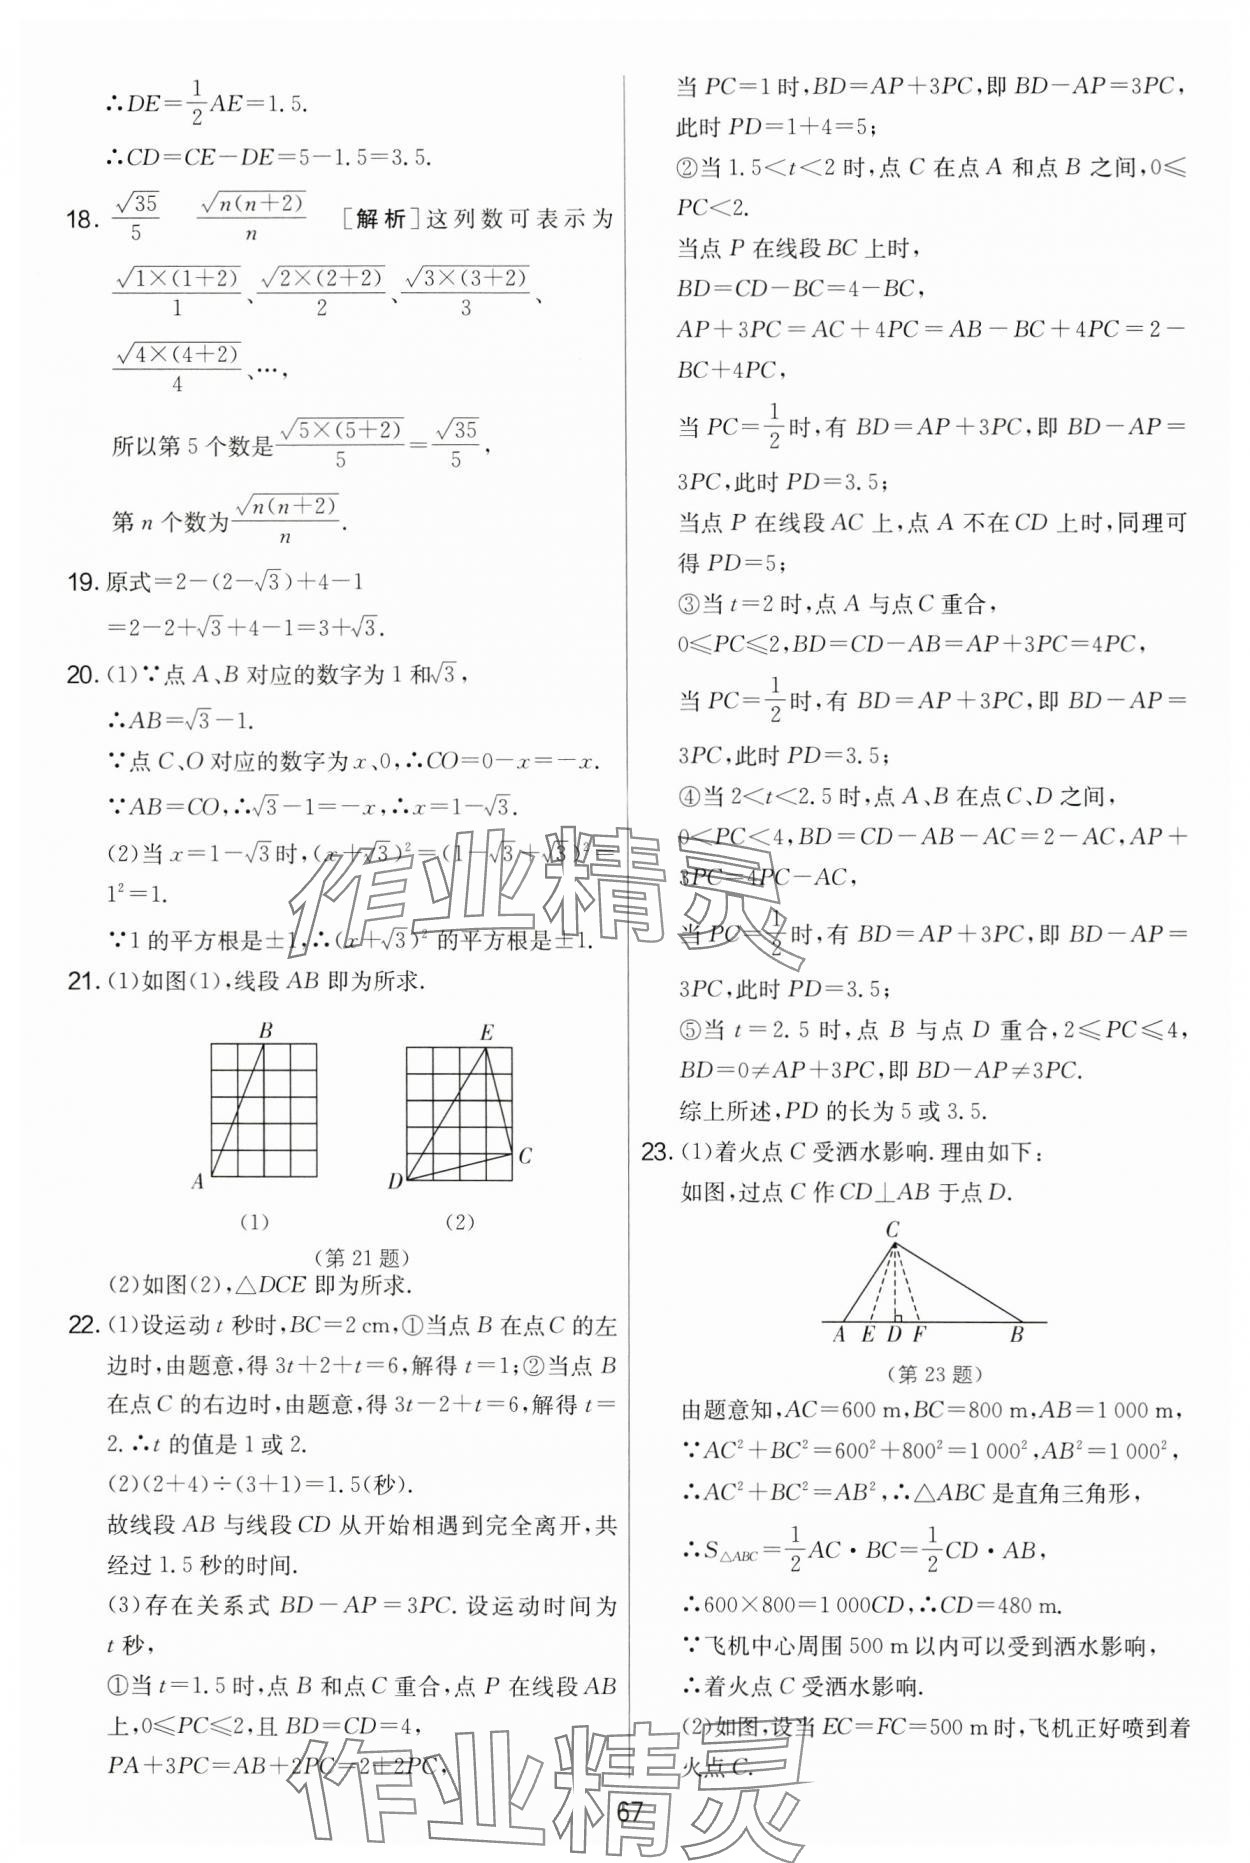 ∴DE=1/2 AE=1.5.
∴CD=CE-DE=5-1.5=3.5.
18. √35/5  √(n(n+2))/n  [解析]这列数可表示为
√(1×(1+2))/1、√(2×(2+2))/2、√(3×(3+2))/3、
√(4×(4+2))/4、…,
所以第5个数是√(5×(5+2))/5=√35/5,
第n个数为√(n(n+2))/n.
19. 原式=2-(2-√3)+4-1
=2-2+√3+4-1=3+√3.
20. (1)∵点A、B对应的数字为1和√3,
∴AB=√3-1.
∵点C、O对应的数字为x、0,∴CO=0-x=-x.
∵AB=CO,∴√3-1=-x,∴x=1-√3.
(2)当x=1-√3时,(x+√3)²=(1-√3+√3)²=
1²=1.
∵1的平方根是±1,∴(x+√3)²的平方根是±1.
21. (1)如图(1),线段AB即为所求.
B
A
(1)
E
C
D
(2)
(第21题)
(2)如图(2),△DCE即为所求.
22. (1)设运动t秒时,BC=2 cm,①当点B在点C的左
边时,由题意,得3t+2+t=6,解得t=1;②当点B
在点C的右边时,由题意,得3t-2+t=6,解得t=
2.∴t的值是1或2.
(2)(2+4)÷(3+1)=1.5(秒).
故线段AB与线段CD从开始相遇到完全离开,共
经过1.5秒的时间.
(3)存在关系式BD-AP=3PC.设运动时间为
t秒,
①当t=1.5时,点B和点C重合,点P在线段AB
上,0≤PC≤2,且BD=CD=4,
PA+3PC=AB+2PC=2+2PC,
当PC=1时,BD=AP+3PC,即BD-AP=3PC,
此时PD=1+4=5;
②当1.5<t<2时,点C在点A和点B之间,0≤
PC<2.
当点P在线段BC上时,
BD=CD-BC=4-BC,
AP+3PC=AC+4PC=AB-BC+4PC=2-
BC+4PC,
当PC=1/2时,有BD=AP+3PC,即BD-AP=
3PC,此时PD=3.5;
当点P在线段AC上,点A不在CD上时,同理可
得PD=5;
③当t=2时,点A与点C重合,
0≤PC≤2,BD=CD-AB=AP+3PC=4PC,
当PC=1/2时,有BD=AP+3PC,即BD-AP=
3PC,此时PD=3.5;
④当2<t<2.5时,点A、B在点C、D之间,
0<PC<4,BD=CD-AB-AC=2-AC,AP+
3PC=4PC-AC,
当PC=1/2时,有BD=AP+3PC,即BD-AP=
3PC,此时PD=3.5;
⑤当t=2.5时,点B与点D重合,2≤PC≤4,
BD=0≠AP+3PC,即BD-AP≠3PC.
综上所述,PD的长为5或3.5.
23. (1)着火点C受洒水影响.理由如下:
如图,过点C作CD⊥AB于点D.
C
A E D F B
(第23题)
由题意知,AC=600 m,BC=800 m,AB=1 000 m,
∵AC²+BC²=600²+800²=1 000²,AB²=1 000²,
∴AC²+BC²=AB²,∴△ABC是直角三角形,
∴S△ABC=1/2 AC·BC=1/2 CD·AB,
∴600×800=1 000CD,∴CD=480 m.
∵飞机中心周围500 m以内可以受到洒水影响,
∴着火点C受洒水影响.
(2)如图,设当EC=FC=500 m时,飞机正好喷到着
火点C.
67
作业精灵
作业精灵